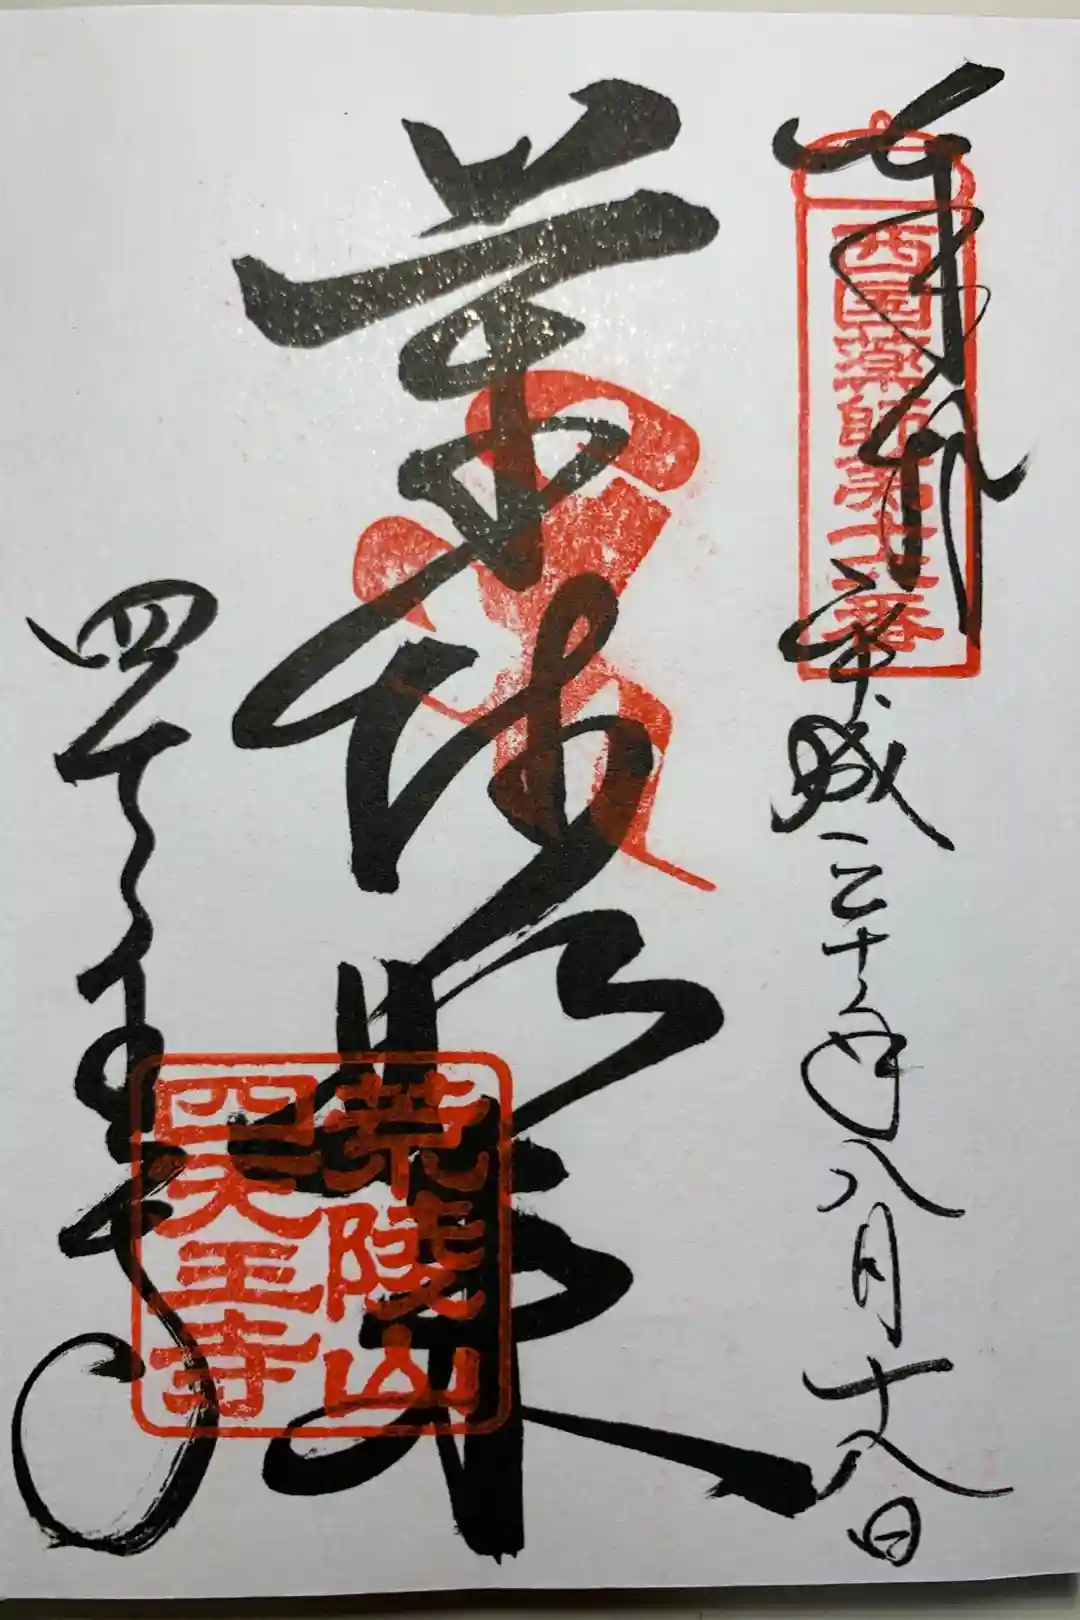 奉拝 平成三十年八月十八日
西国薬師第十六番
薬師如来
荒陵山
四天王寺
四天王寺